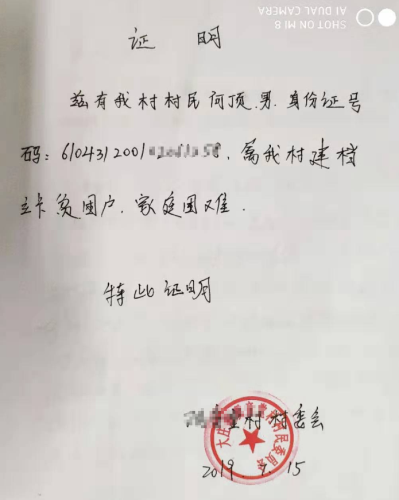 SHOT ON MI 8
AI DUAL CAMERA
证 明
兹有我村村民何顶,男,身份证号
码:61043120012,属我村建档
立卡贫困户,家庭困难.
特此证明
村村委会
2019.7.15